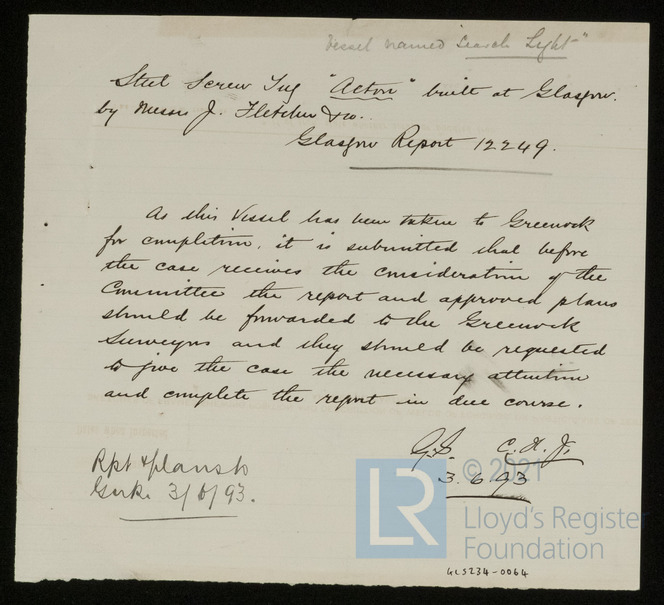 Vessel named "Search Light"
Steel Screw Tug "Acton" built at Glasgow.
by Messrs J. Fletcher & Co.
Glasgow Report 12249.
As this Vessel has been taken to Greenock
for completion, it is submitted that before
the case receives the consideration of the
Committee the report and approved plans
should be forwarded to the Greenock
Surveyors and they should be requested
to give the case the necessary attention
and complete the report in due course.
3.6.93
Rpt & plans to
Grk. 3/6/93.
© 2021
LR
Lloyd's Register
Foundation
GLS234-0064